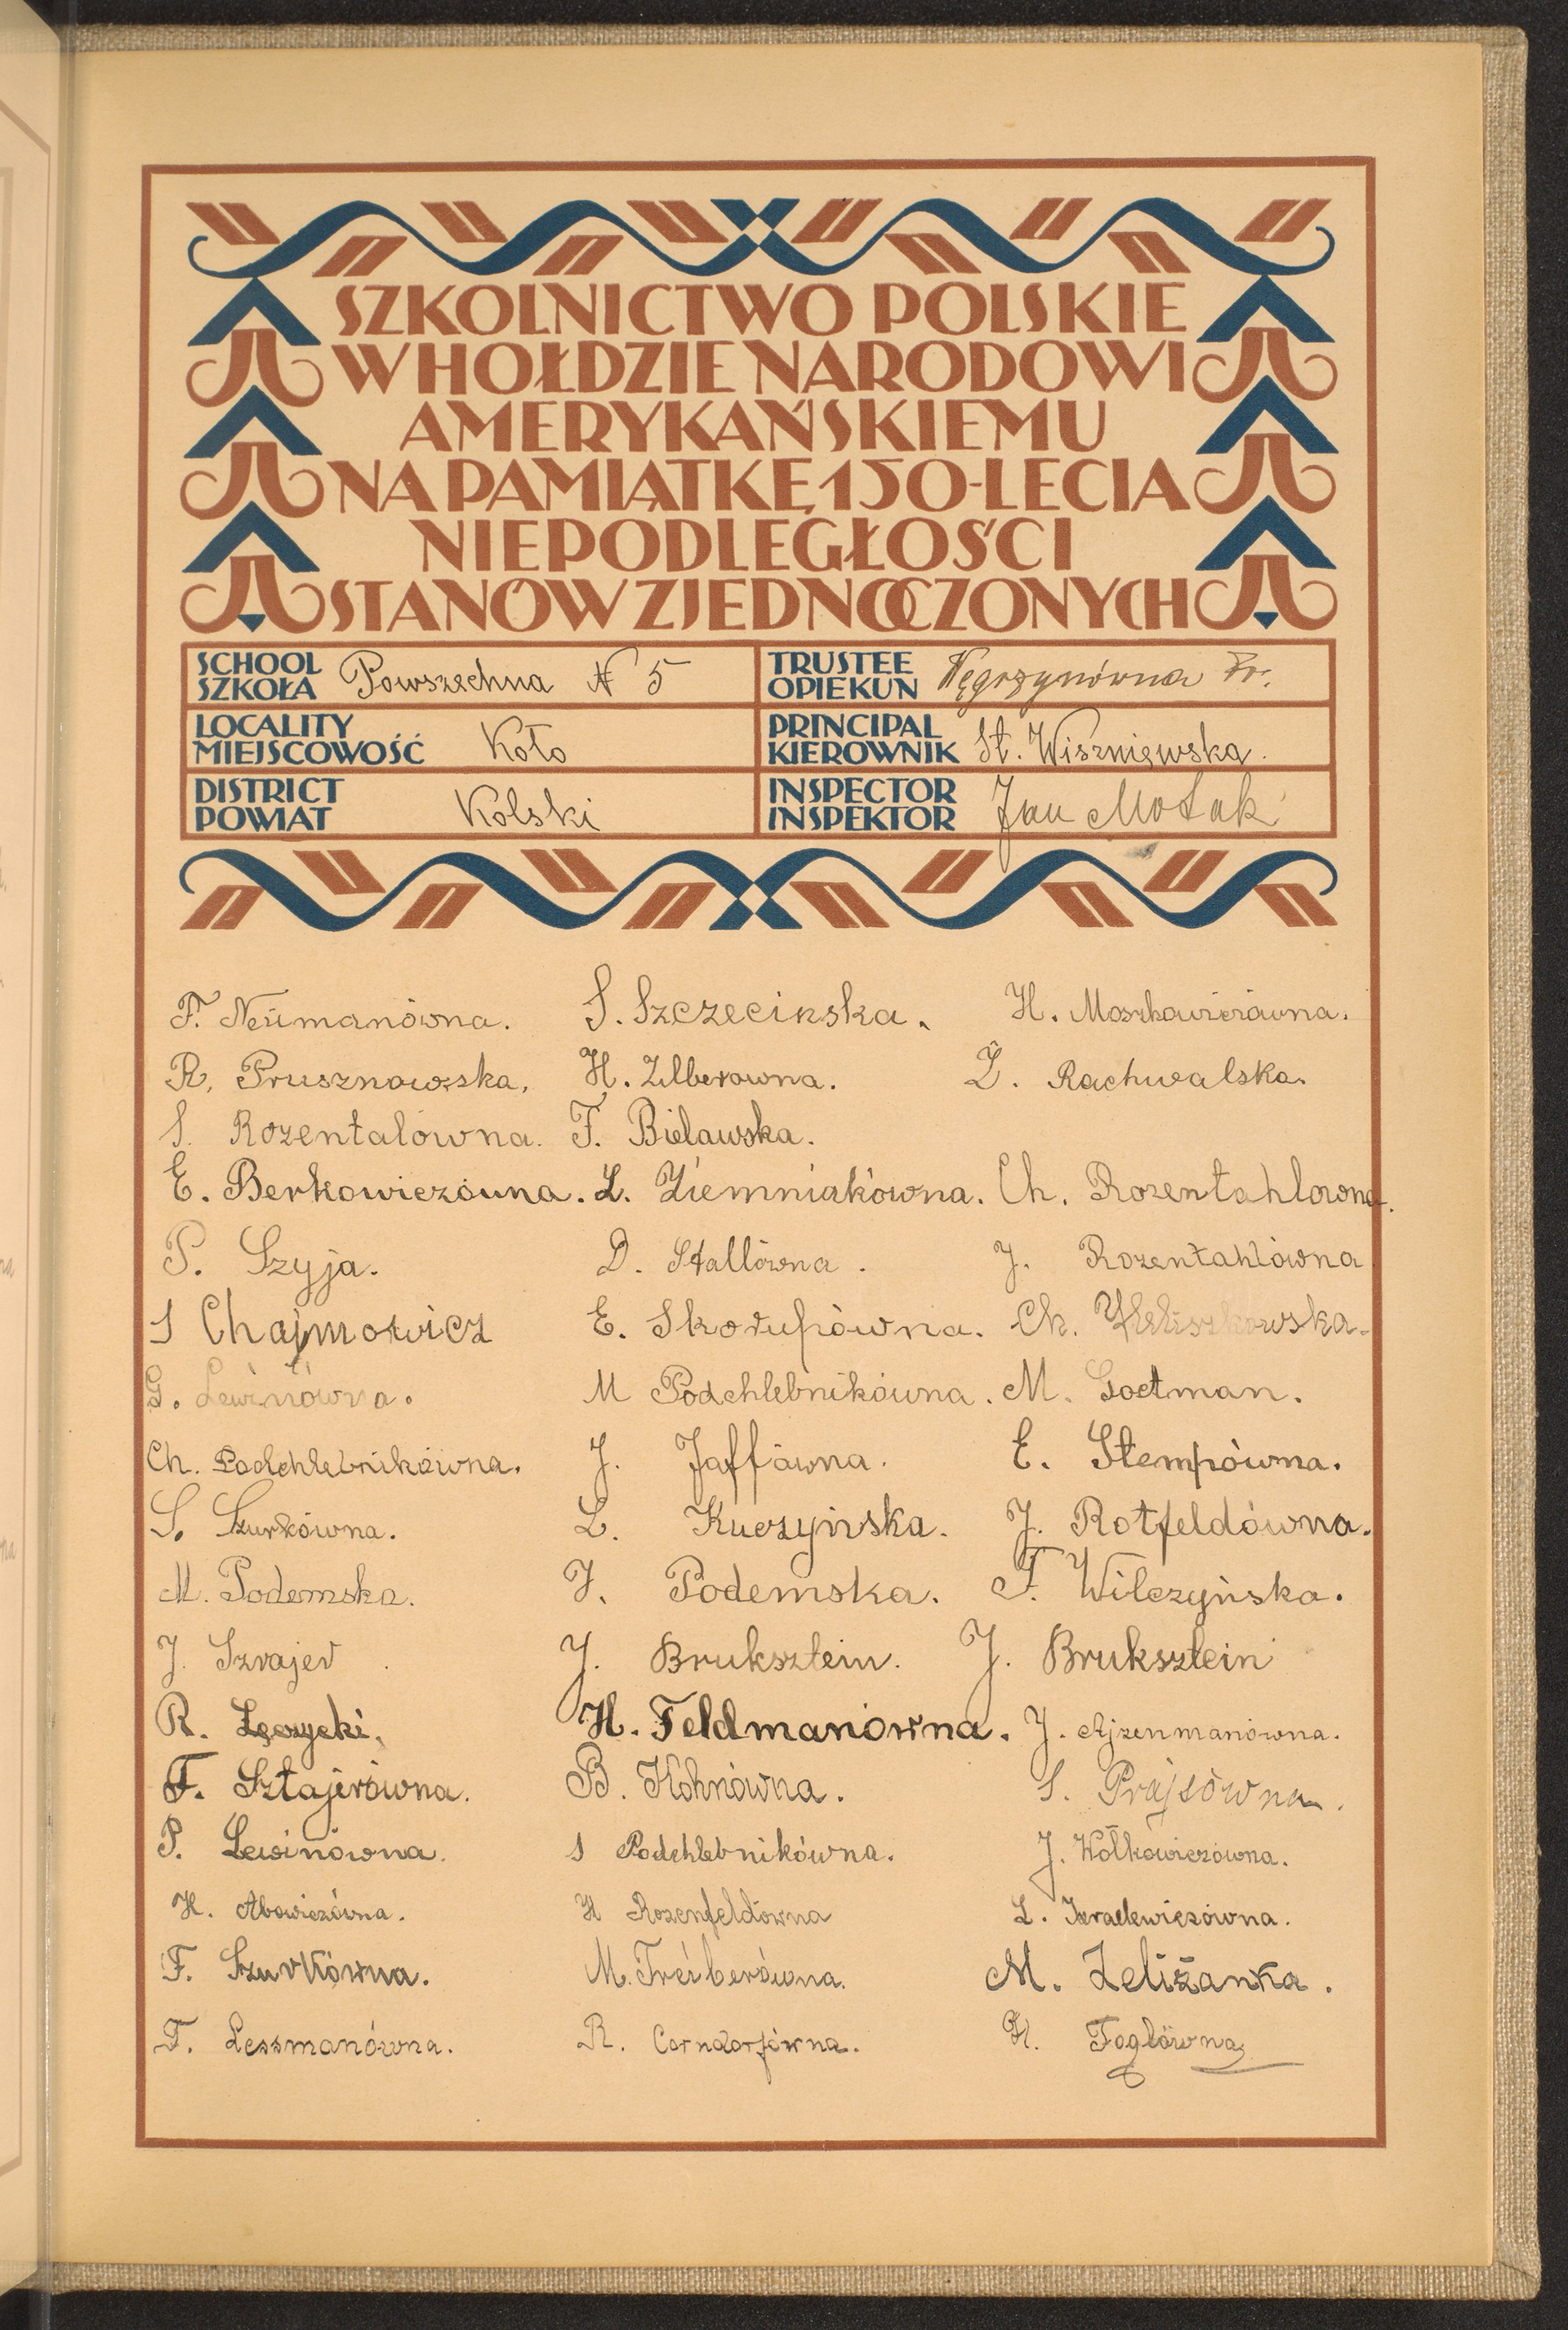 SZKOLNICTWO POLSKIE
W HOŁDZIE NARODOWI
AMERYKAŃSKIEMU
NA PAMIĄTKĘ 150-LECIA
NIEPODLEGŁOŚCI
STANÓW ZJEDNOCZONYCH
SCHOOL SZKOŁA Powszechna N 5
TRUSTEE OPIEKUN Węgrzynówna Fr.
LOCALITY MIEJSCOWOŚĆ Koło
PRINCIPAL KIEROWNIK St. Wiszniewska.
DISTRICT POWIAT Kolski
INSPECTOR INSPEKTOR Jan
F. Neumanówna. S. Szczecinska. H. Moszkowiczówna.
R. Prusznowska. H. Zilberowna. Ł. Rachwalska.
S. Rozentalówna. F. Bielawska.
E. Berkowiczówna. L. Ziemniakówna. Ch. Rozentahlowna.
P. Szyja. D. Stallówna. J. Rozentahlówna
S Chajmowicz E. Skorupówna. Ch.
G. Lewinówna. M Podchlebnikówna. M. Goetman.
Ch. Podchlebnikówna. J. Jaffówna. E. Stempówna.
S. Szurkówna. L. Kuczyńska. J. Rotfeldówna.
M. Podemska. J. Podemska. F. Wilczyńska.
J. Szrajer. J. Bruksztein. J. Bruksztein
R. Łęczycki. H. Feldmanówna. J. Ajzenmanówna.
F. Sztajerówna. B. Kohnówna. S. Prajsówna.
P. Lewinówna. S Podchlebnikówna. J. Kolkowiczówna.
H. Abowiczówna. H Rozenfeldówna L. Izraelewiczówna.
F. Szurkówna. M. Treiberówna. M. Zeliżanka.
F. Lessmanówna. R. Corndorfówna. H. Foglówna